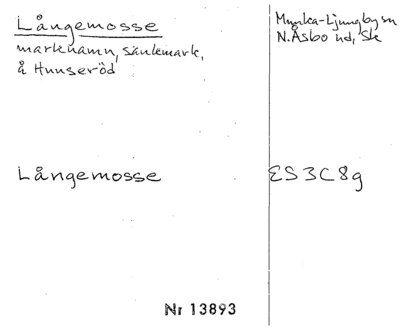 Långemosse
marknamn, sankmark,
å Hunseröd
Munka-Ljungby sn
N. Åsbo hd, Sk
Långemosse
ES3C8g
Nr 13893